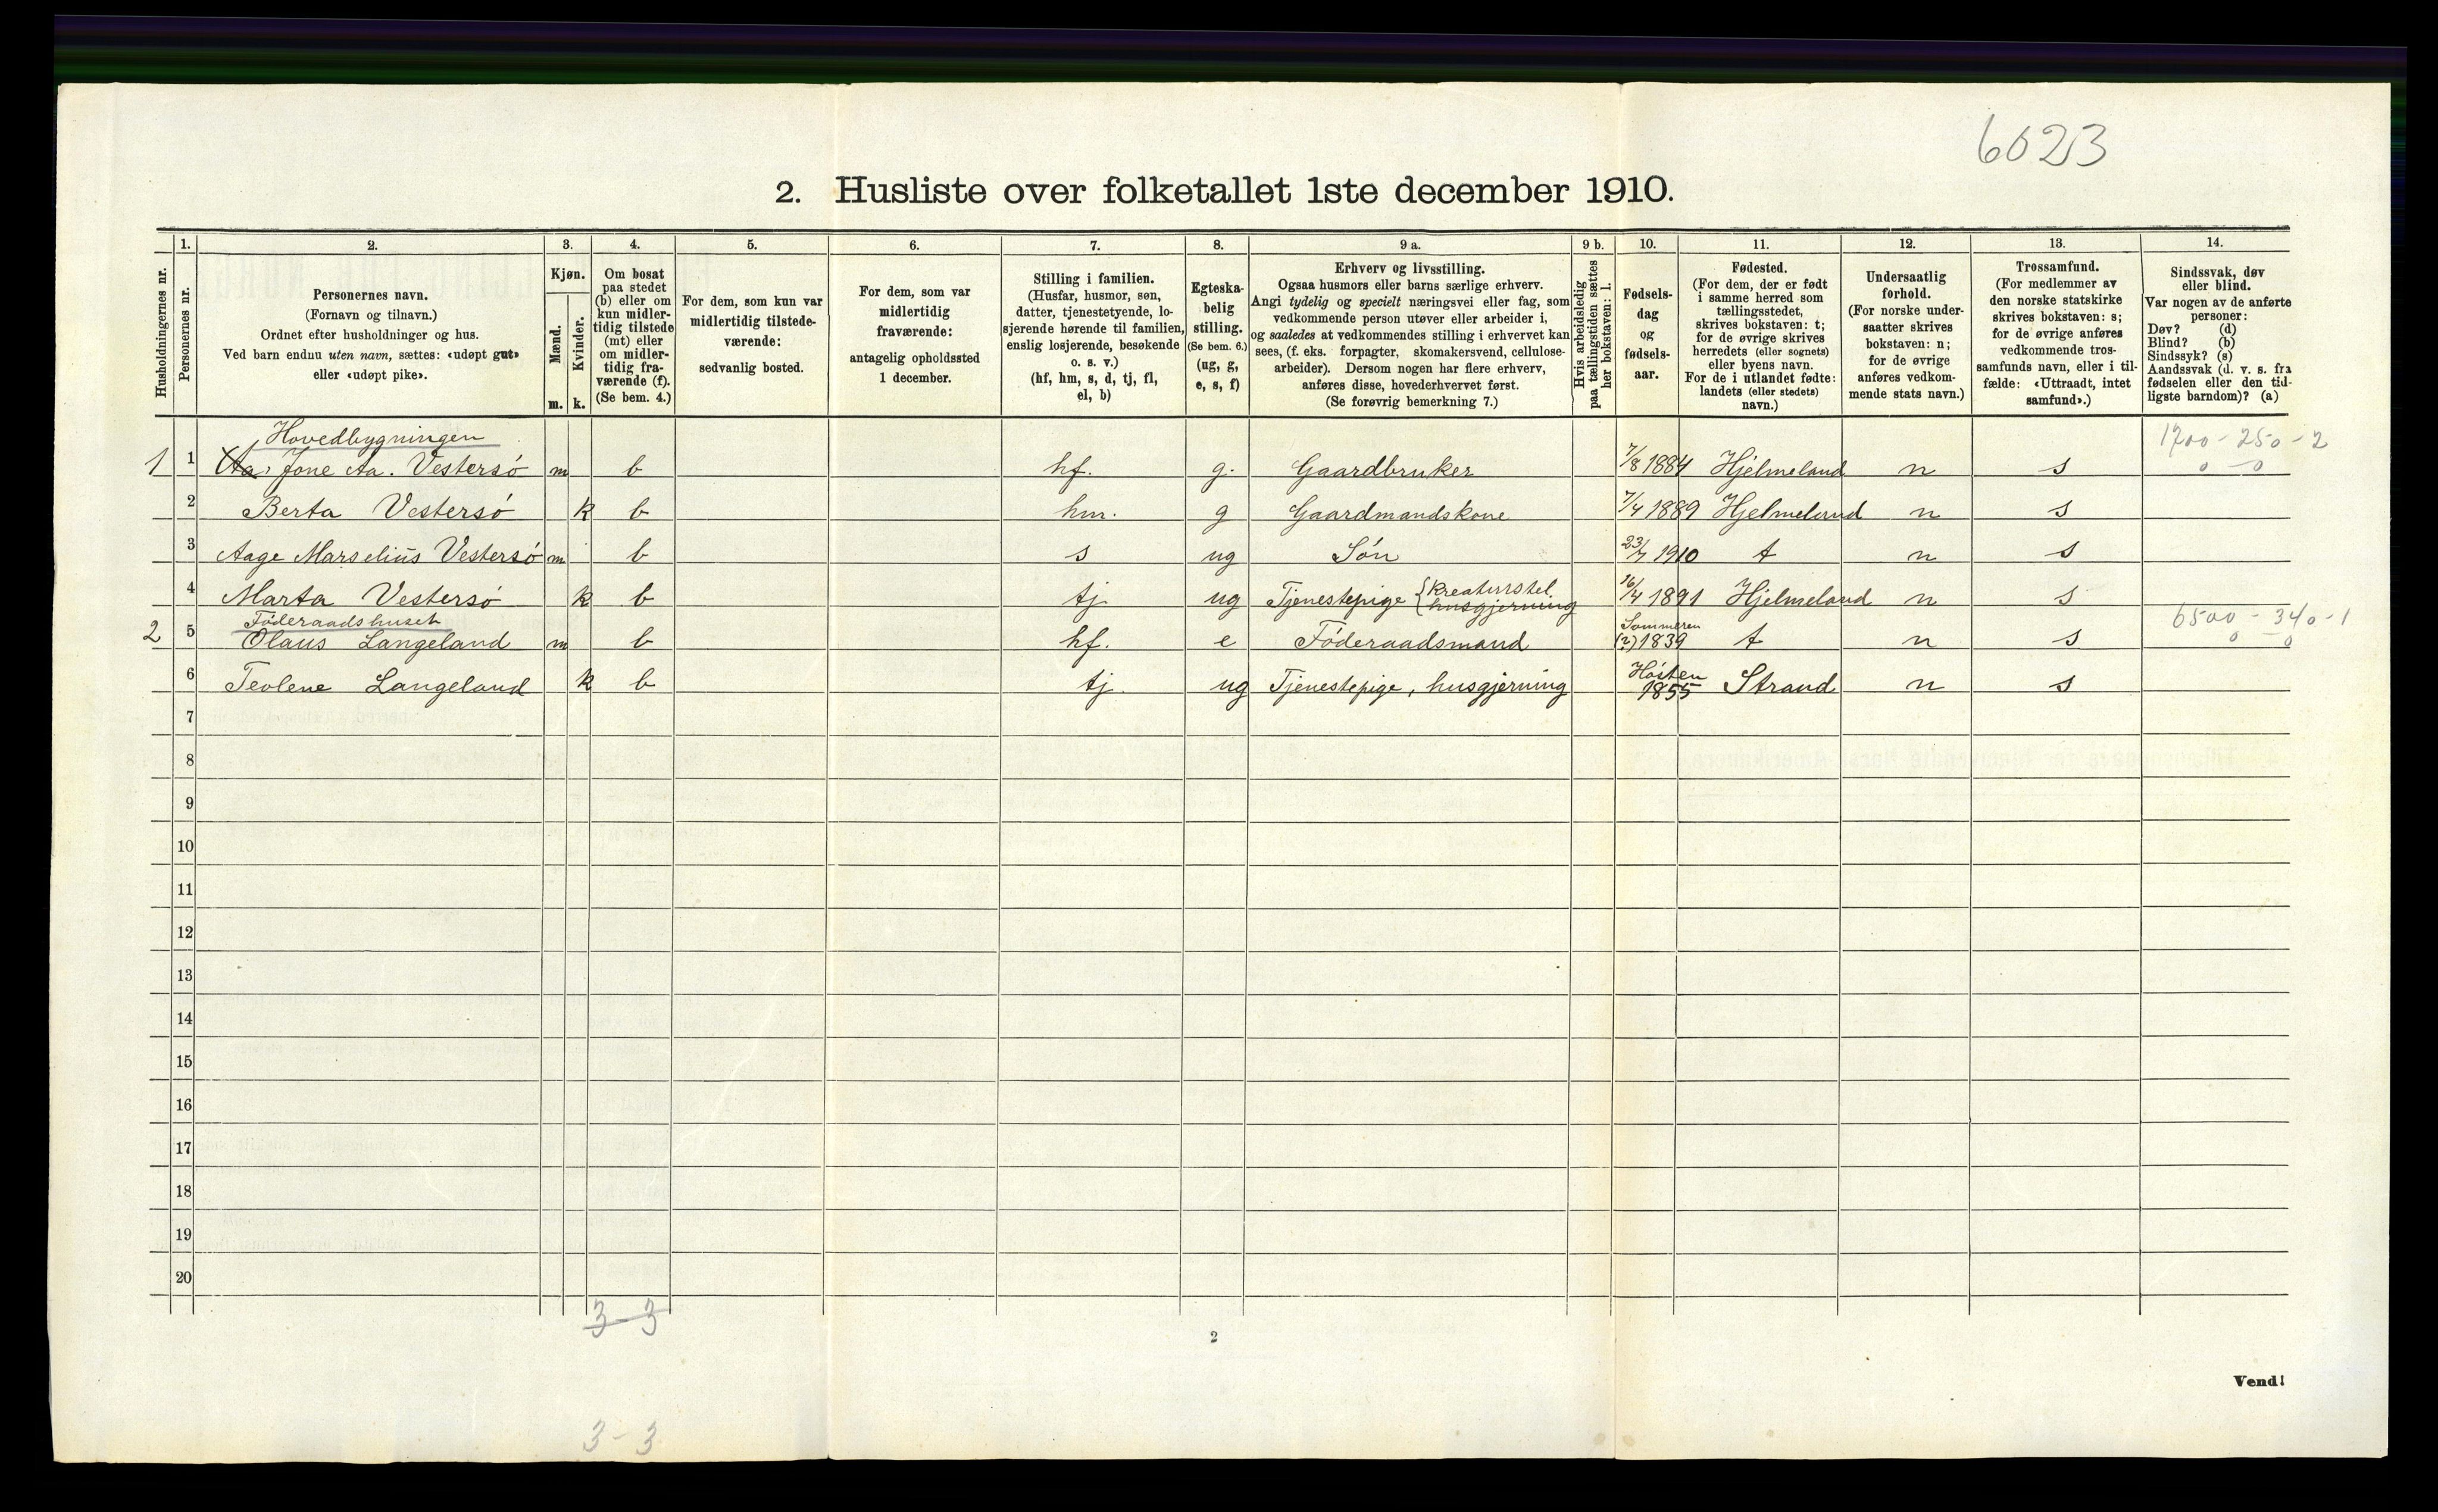 6023
2. Husliste over folketallet 1ste december 1910.
Husholdningernes nr.
1.
Personernes nr.
2.
Personernes navn.
(Fornavn og tilnavn.)
Ordnet efter husholdninger og hus.
Ved barn endnu uten navn, sættes: «udøpt gut»
eller «udøpt pike».
3.
Kjøn.
Mænd.
Kvinder.
m. k.
4.
Om bosat
paa stedet
(b) eller om
kun midler-
tidig tilstede
(mt) eller
om midler-
tidig fra-
værende (f).
(Se bem. 4.)
5.
For dem, som kun var
midlertidig tilstede-
værende:
sedvanlig bosted.
6.
For dem, som var
midlertidig
fraværende:
antagelig opholdssted
1 december.
7.
Stilling i familien.
(Husfar, husmor, søn,
datter, tjenestetyende, lo-
sjerende hørende til familien,
enslig losjerende, besøkende
o. s. v.)
(hf, hm, s, d, tj, fl,
el, b)
8.
Egteska-
belig
stilling.
(Se bem. 6.)
(ug, g,
e, s, f)
9 a.
Erhverv og livsstilling.
Ogsaa husmors eller barns særlige erhverv.
Angi tydelig og specielt næringsvei eller fag, som
vedkommende person utøver eller arbeider i,
og saaledes at vedkommendes stilling i erhvervet kan
sees, (f. eks. forpagter, skomakersvend, cellulose-
arbeider). Dersom nogen har flere erhverv,
anføres disse, hovederhvervet først.
(Se forøvrig bemerkning 7.)
9 b.
Hvis arbeidsledig
paa tællingstiden sættes
her bokstaven: l.
10.
Fødsels-
dag
og
fødsels-
aar.
11.
Fødested.
(For dem, der er født
i samme herred som
tællingsstedet,
skrives bokstaven: t;
for de øvrige skrives
herredets (eller sognets)
eller byens navn.
For de i utlandet fødte:
landets (eller stedets)
navn.)
12.
Undersaatlig
forhold.
(For norske under-
saatter skrives
bokstaven: n;
for de øvrige
anføres vedkom-
mende stats navn.)
13.
Trossamfund.
(For medlemmer av
den norske statskirke
skrives bokstaven: s;
for de øvrige anføres
vedkommende tros-
samfunds navn, eller i til-
fælde: «Uttraadt, intet
samfund».)
14.
Sindssvak, døv
eller blind.
Var nogen av de anførte
personer:
Døv? (d)
Blind? (b)
Sindssyk? (s)
Aandssvak (d. v. s. fra
fødselen eller den tid-
ligste barndom)? (a)
Hovedbygningen
1700 - 250 - 2
0 - 0
1 1 Aa, Jone Aa. Vestersö m b hf. g. Gaardbruker 7/8 1884 Hjelmeland n s
2 Berta Vestersö k b hm. g Gaardmandskone 7/4 1889 Hjelmeland n s
3 Aage Marselius Vestersö m b s ug Sön 23/7 1910 t n s
4 Marta Vestersö k b tj ug Tjenestepige {kreaturstel husgjerning 16/4 1891 Hjelmeland n s
Föderaadshuset
6500 - 340 - 1
0 - 0
2 5 Olaus Langeland m b hf. e Föderaadsmand Sommeren (?) 1839 t n s
6 Teolene Langeland k b tj. ug Tjenestepige, husgjerning Hösten 1855 Strand n s
7
8
9
10
11
12
13
14
15
16
17
18
19
20
3-3
2
Vend!
3-3